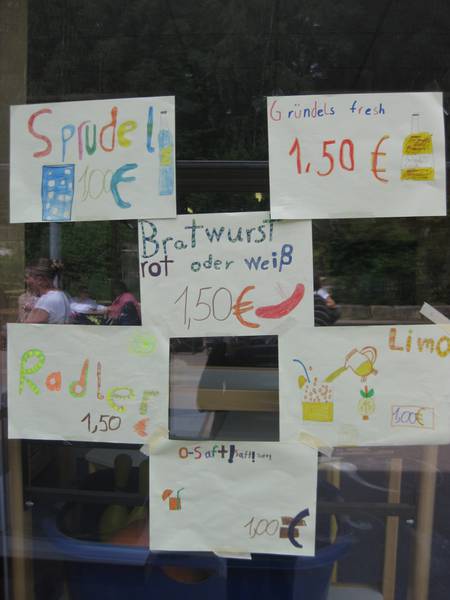 Sprudel
1,00 €
Gründels fresh
1,50 €
Bratwurst
rot oder weiß
1,50 €
Radler
1,50 €
Limo
1,00€
O-Saft!
1,00 €